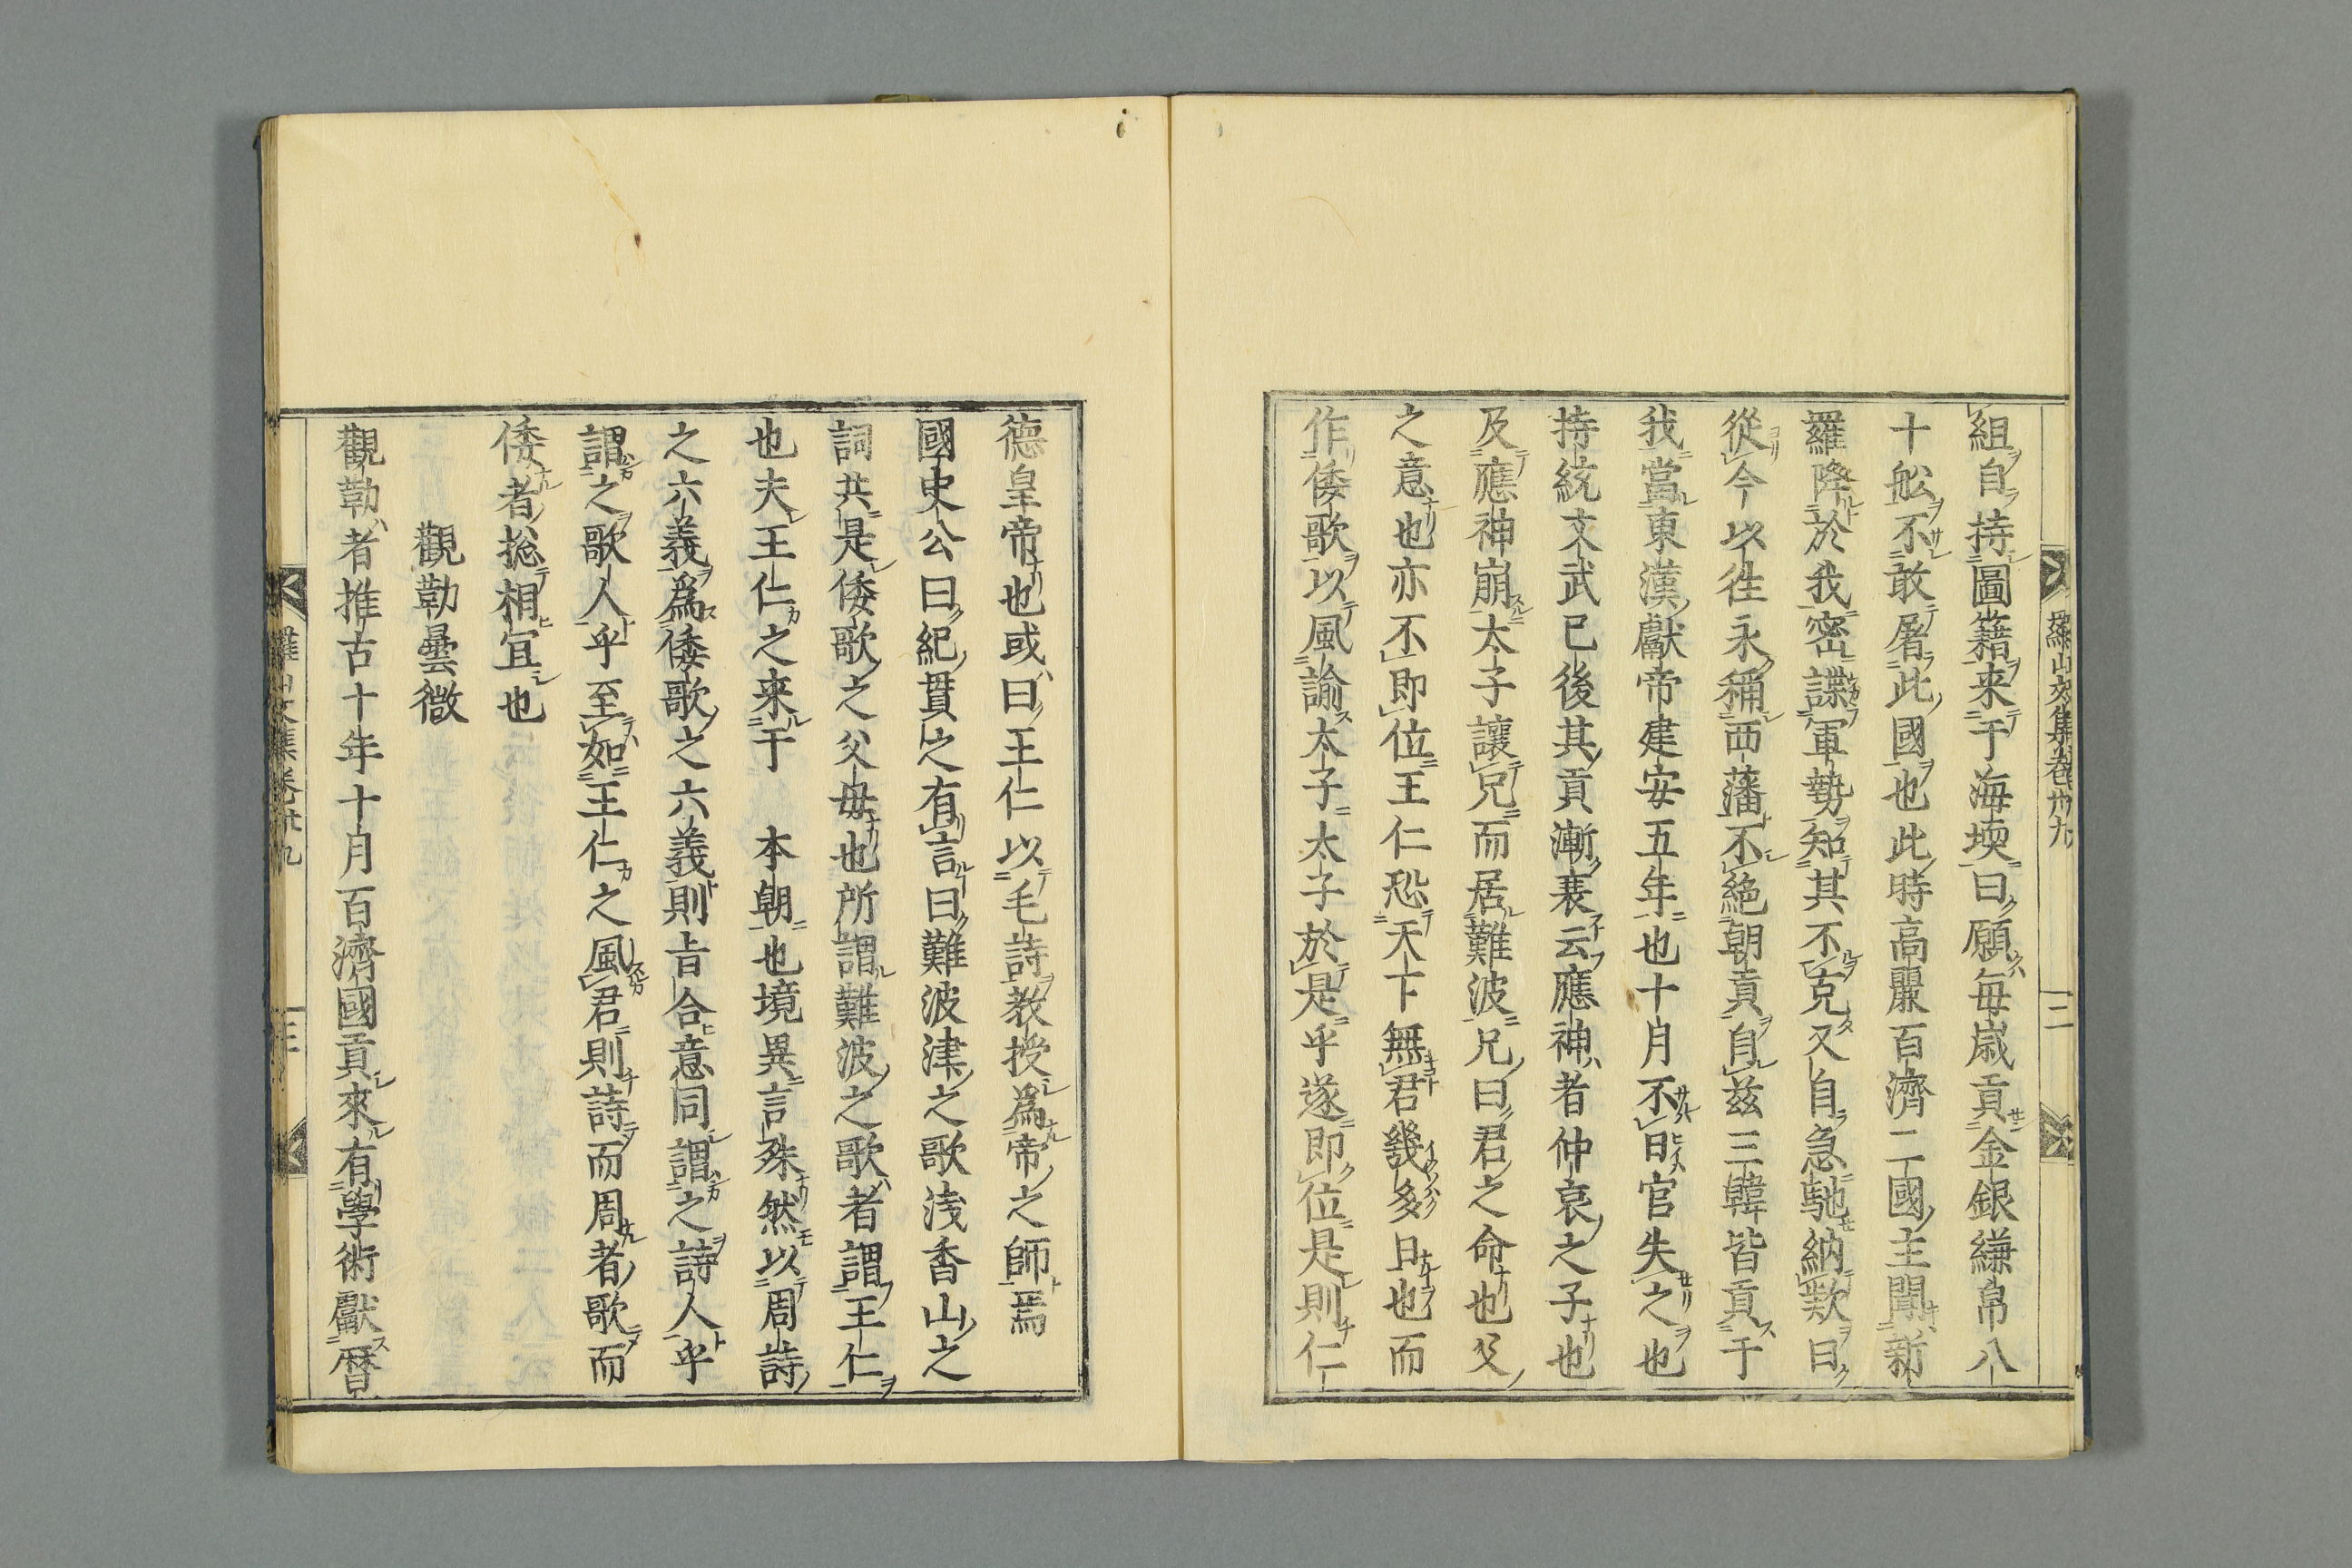 組自持圖籍来于海堧曰願毎歳貢金銀縑帛八
十舩不敢屠此國也此時高麗百濟二國主聞新
羅降於我密諜軍勢知其不克又自急馳納欵曰
從今以徃永稱西藩不絶朝貢自兹三韓皆貢于
我當東漢獻帝建安五年也十月不曰官失之也
持統文武已後其貢漸衰云應神者仲哀之子也
及應神崩太子讓兄而居難波兄曰君之命也父
之意也亦不即位王仁恐天下無君幾多日也而
作倭歌以風諭太子太子於是乎遂即位是則仁
羅山文集卷卅九
二
德皇帝也或曰王仁以毛詩教授爲帝之師焉
國史公曰紀貫之有言曰難波津之歌浅香山之
詞共是倭歌之父母也所謂難波之歌者謂王仁
也夫王仁之来于　本朝也境異言殊然以周詩
之六義爲倭歌之六義則旨合意同謂之詩人乎
謂之歌人乎至如王仁之風君則詩而周者歌而
倭者捴相宜也
觀勒曇徴
觀勒者推古十年十月百濟國貢來有學術獻暦